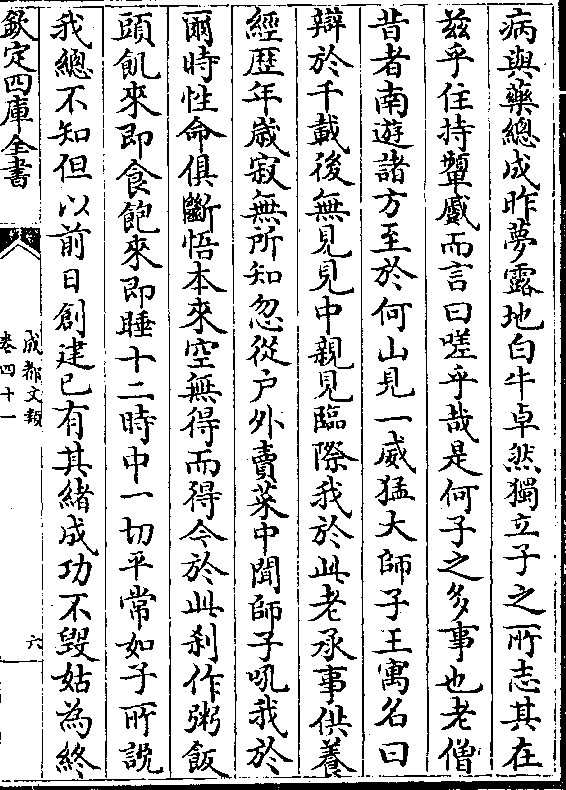 病與藥總成昨夢露地白牛卓然獨立子之所志其在
兹乎住持顰蹙而言曰嗟乎哉是何子之多事也老僧
昔者南遊諸方至於何山見一威猛大師子王寓名曰
辯於千載後無見見中親見臨際我於此老承事供養
經歴年歳寂無所知忽從户外賣菜中聞師子吼我於
爾時性命俱斷悟本來空無得而得今於此刹作粥飯
頭飢來即食飽來即睡十二時中一切平常如子所說
我總不知但以前日創建已有其緒成功不毁姑為終
欽定四庫全書
成都文類
卷四十一
六